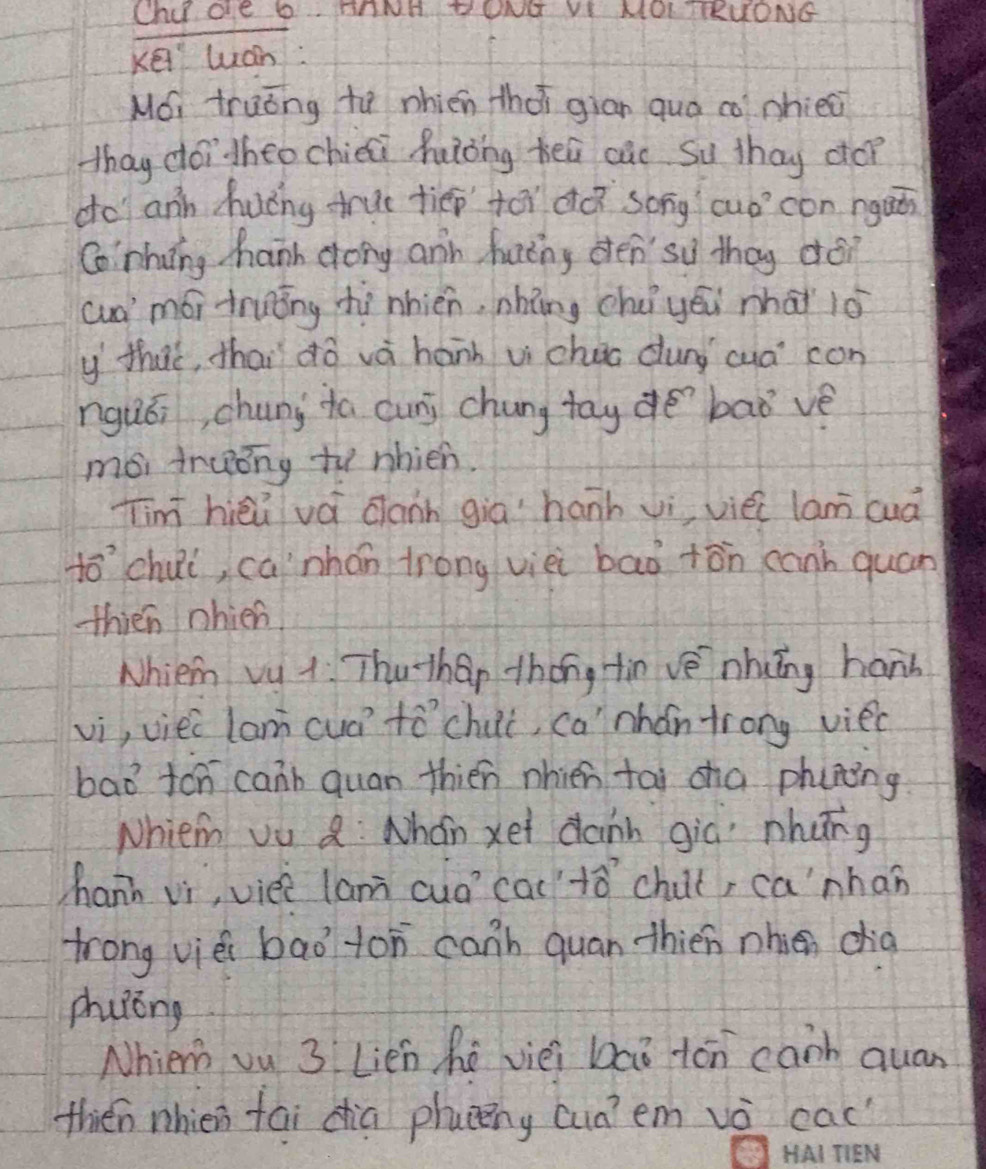 Chủ đề 6: HÀNH ĐỘNG VÌ MÔI TRƯỜNG
Kết luận:
Môi trường tự nhiên thời gian qua có nhiều
thay đổi theo chiều hướng tiêu cực sự thay đổi
đó ảnh hưởng trực tiếp tới đời sống của con người
Có những hành động ảnh hưởng đến sự thay đổi
của môi trường tự nhiên, nhưng chủ yếu nhất là
ý thức, thái độ và hành vi chưa đúng của con
người, chúng ta cùng chung tay để bảo vệ
môi trường tự nhiên.
Tìm hiểu và đánh giá hành vi, việc làm của
tổ chức, cá nhân trong việc bảo tồn cảnh quan
thiên nhiên.
Nhiệm vụ 1: Thu thập thông tin về những hành
vi, việc làm của tổ chức, cá nhân trong việc
bảo tồn cảnh quan thiên nhiên tại địa phương.
Nhiệm vụ 2: Nhận xét đánh giá những
hành vi, việc làm của các tổ chức, cá nhân
trong việc bảo tồn cảnh quan thiên nhiên địa
phương.
Nhiệm vụ 3: Liên hệ việc bảo tồn cảnh quan
thiên nhiên tại địa phương của em và các
HAI TIEN